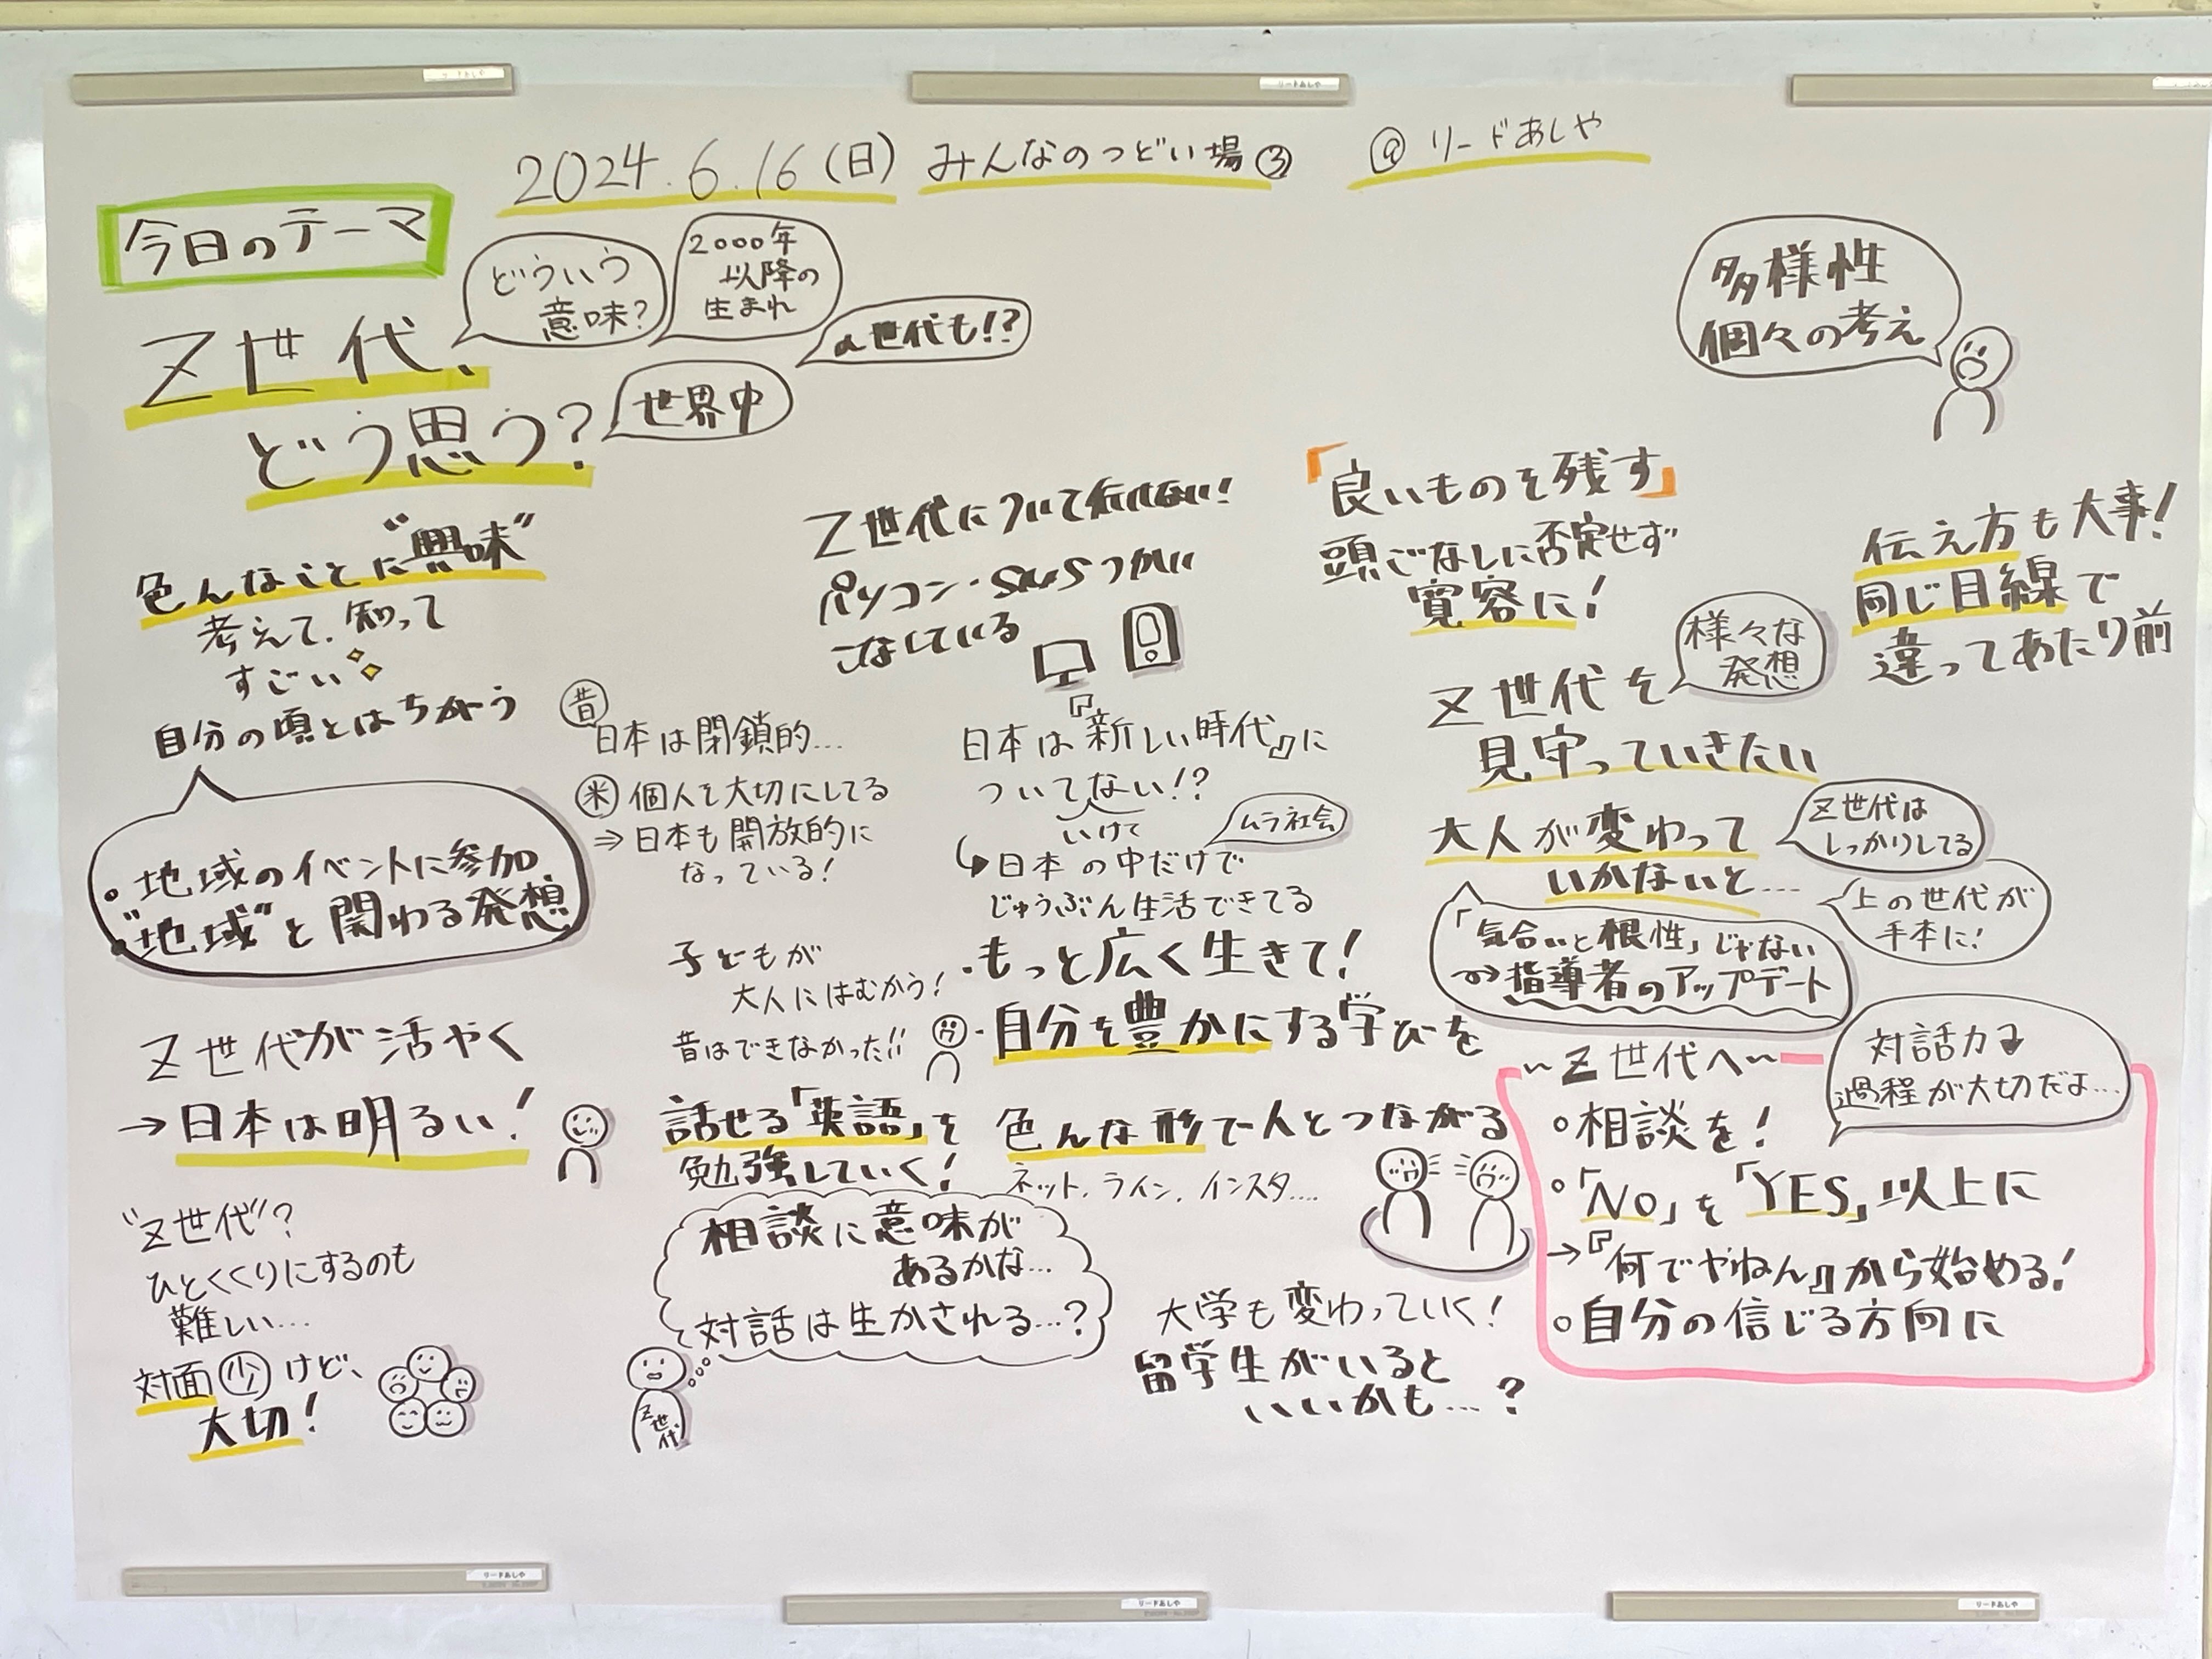 2024.6.16(日) みんなのつどい場③ @リードあしや
今日のテーマ
Z世代、
どう思う?
どういう
意味?
2000年
以降の
生まれ
α世代も!?
世界中
多様性
個々の考え
色んなことに"興味"
考えて、知って
すごい
自分の頃とはちがう
・地域のイベントに参加
・"地域"と関わる発想
Z世代が活やく
→日本は明るい!
"Z世代"?
ひとくくりにするのも
難しい…
対面㊛けど、
大切!
昔
日本は閉鎖的…
米 個人を大切にしてる
⇒日本も開放的に
なっている!
子どもが
大人にはむかう!
昔はできなかった!!
話せる「英語」を
勉強していく!
相談に意味が
あるかな…
対話は生かされる…?
Z世代
Z世代について行けない!
パソコン・SNSつかい
こなしている
日本は『新しい時代』に
ついてない!?
いけて
ムラ社会
↳日本の中だけで
じゅうぶん生活できてる
・もっと広く生きて!
・自分を豊かにする学びを
色んな形で人とつながる
ネット、ライン、インスタ….
大学も変わっていく!
留学生がいると
いいかも…?
「良いものを残す」
頭ごなしに否定せず
寛容に!
Z世代を
見守っていきたい
様々な
発想
伝え方も大事!
同じ目線で
違ってあたり前
大人が変わって
いかないと…
Z世代は
しっかりしてる
上の世代が
手本に!
「気合いと根性」じゃない
⇒指導者のアップデート
~Z世代へ~
対話力↴
過程が大切だよ…
○相談を!
○「NO」を「YES」以上に
→『何でやねん』から始める!
○自分の信じる方向に
リードあしや
リードあしや
リードあしや
リードあしや
リードあしや